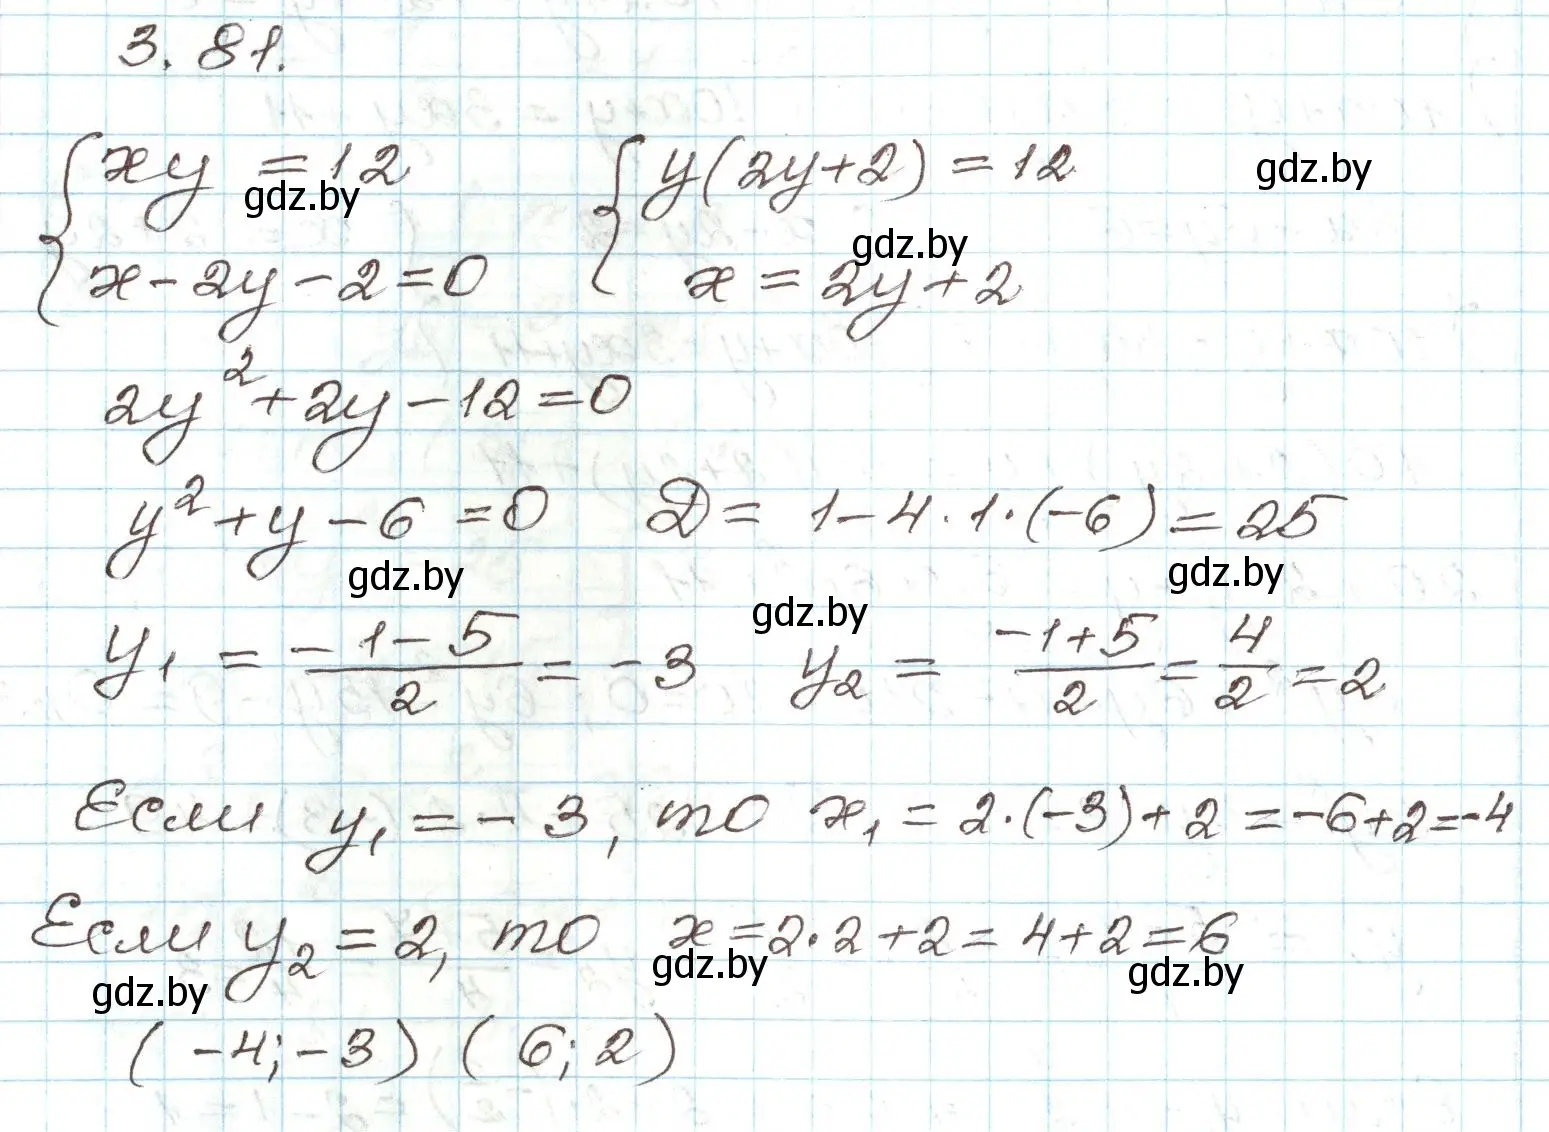 3.81.
{ xy = 12 { y(2y+2) = 12 gdz.by
gdz.by
x - 2y - 2 = 0 x = 2y + 2
gdz.by
2y² + 2y - 12 = 0
y² + y - 6 = 0 D = 1 - 4 · 1 · (-6) = 25
gdz.by gdz.by
y₁ = (-1 - 5)/2 = -3 y₂ = (-1 + 5)/2 = 4/2 = 2
gdz.by
Если y₁ = -3, то x₁ = 2·(-3) + 2 = -6 + 2 = -4
Если y₂ = 2, то x = 2·2 + 2 = 4 + 2 = 6
gdz.by gdz.by gdz.by
(-4; -3) (6; 2)